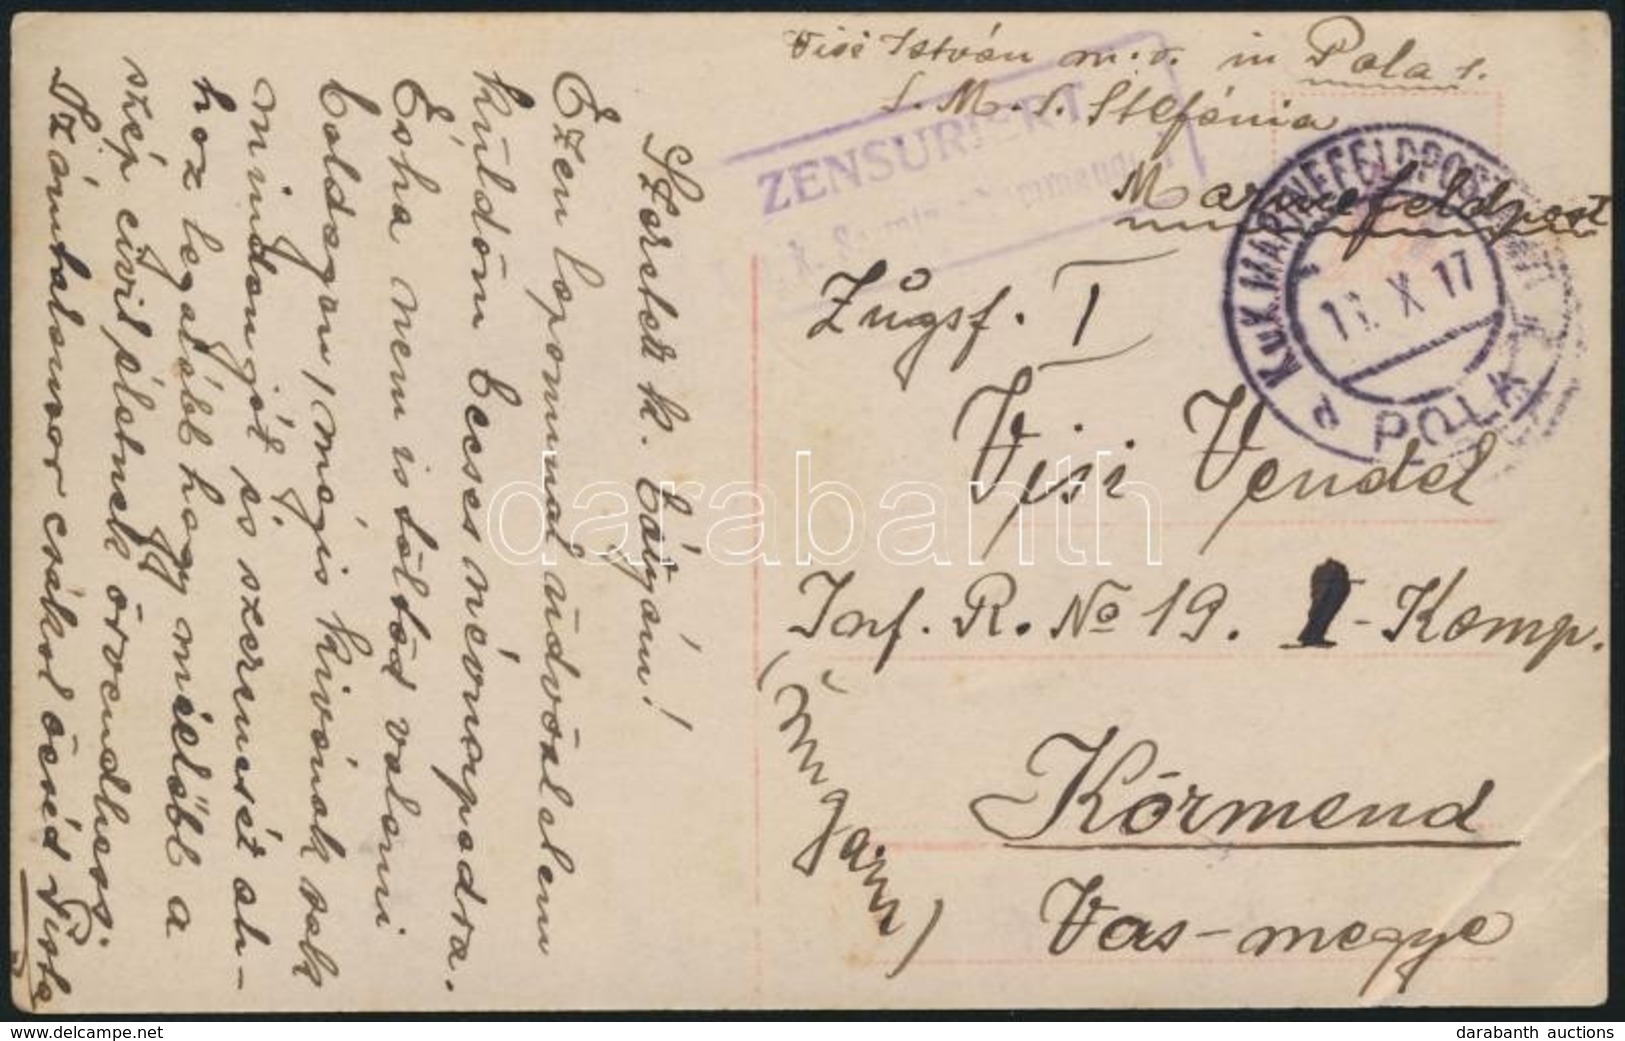 Visi István m.o. in Pola 1.
S. M. S. Stefánia
Marinefeldpost
ZENSURIERT
K.u.K. MARINEFELDPOSTAMT
11. X 17
a POLA
Zugsf. I
Visi Vendel
Inf. R. No 19. 1-Komp.
Körmend
Vas-megye
(Ungarn)
Szeretett k. bátyám!
Ezen lapommal üdvözletem
küldöm becses névnapodra.
És ha nem is töltöd valami
boldogan, mégis kivánok sok
minden jót és szerencsét ah-
hoz legalább hogy mielőbb a
szép civil életnek örvendhess.
Számtalanszor csókol öcséd Pista
darabanth
darabanth auctions